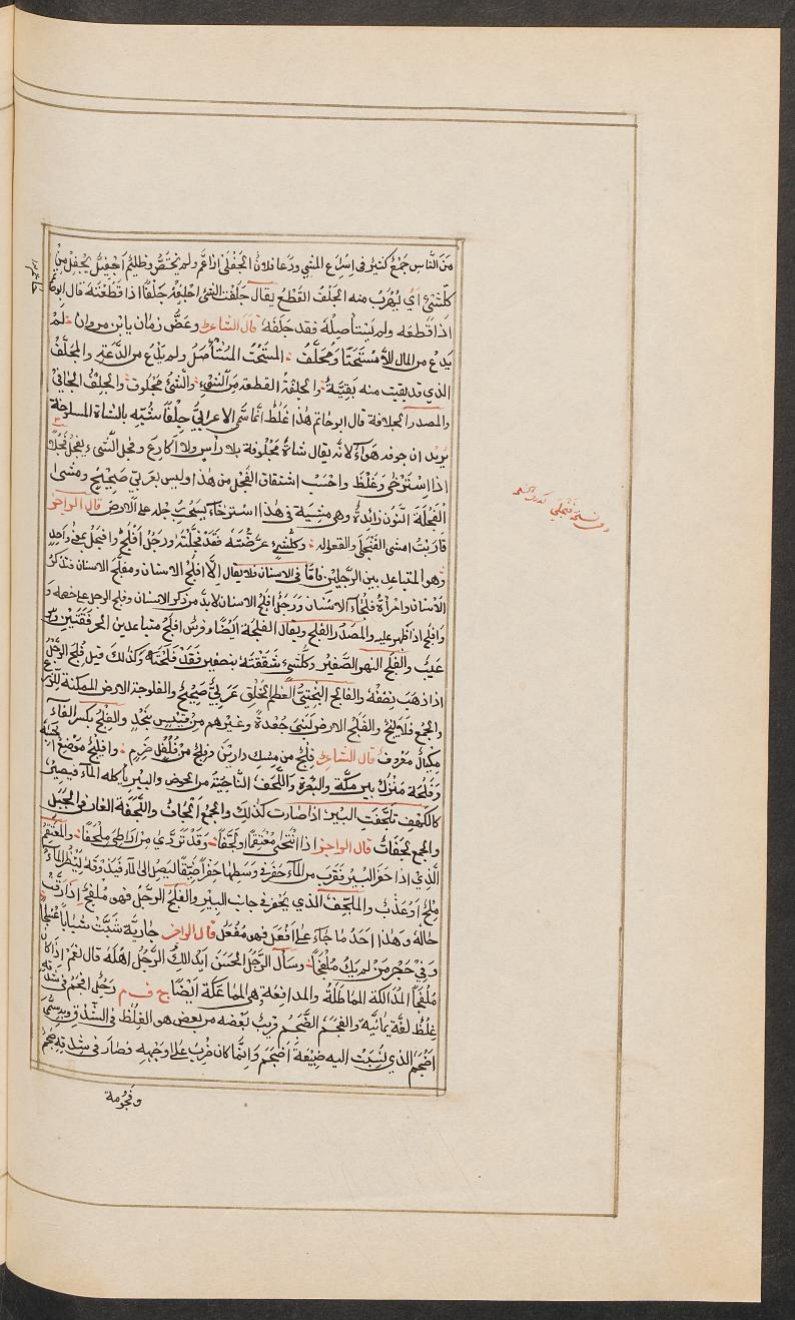 مِنَ النَّاسِ جَمْعٌ كثيرٌ فى اِسْرَاع المشي ودَعا فلانٌ الجَفَلَى اذا عَمَّ ولم يَخْتصّ وظليمٌ اِجْفِيلٌ يَجْفِلُ مِنْ
كلّ شيْءٍ اَيْ يَهْرُبُ منه الجَلْفُ القَطْعُ يقال جَلَفْتُ الشئَ اجْلِفُهُ جَلْفًا اذا قَطَعْتَهُ قال ابوحاتم
اذا قَطَعَه ولم يَسْتأصِلْهُ فقد جَلَفَهُ قال الشاعرُ وعَضُّ زمانٍ يا ابْن مروان لَمْ
يَدَعْ من المال اِلاَّ مُسْحَتًا وَمُجَلَّفُ المُسْحَتُ المُسْتَأْصَلُ ولم يَدَعْ من الدَّعَةِ والمجَلَّفُ
الذي قد بقيت منه بَقِيَّةٌ والجِلْفَةُ القطعة مِنَ الشيْءِ والشئُ مَجْلُوفٌ والجِلْفُ الجَافيْ
والمصدر الجلافة قال ابوحاتم هٰذا غَلَطٌ اِنَّما سُمّى الاعرابيُّ جِلْفًا شُبِّهَ بالشاة المسلوخة
يُريد ان جوفه هَوَآءٌ لانَّه يقال شاةٌ مَجْلُوفةٌ بلا رَأسٍ ولا اكارِعَ وفَجِلَ الشَّيء يَفْجَلُ فَجَلاً
اذا اسْتَرْخَى وَغَلُظَ واحْسِبُ اشتقاق الفُجْل من هٰذا وليس بعَربىّ صَحِيْحٍ ومَشَى
الفَنْجَلَةَ النّون زائِدةٌ وهى مِشْيَة فى هٰذا اسْتِرْخَآء يَسْحَبُ رِجله على الارض قال الراجز
قارَبْتُ امْشى الفَنْجَلَى والقَعْوَلَه وكلّ شيءٍ عرّضْتَهُ فَقَدْ فَجَّلْتَهُ ورَجُلٌ اَفْلَجُ وافْجَلُ بمعْنًى واحِدٍ
وهو المتباعد بين الرِّجلَيْنِ فامَّا فى الاسنان فلا يقال اِلَّا افْلَجُ الاسنان ومفَلَّج الاسنان فتذكرُ
الاَسْنانَ وامْرأةٌ فَلْجَآءُ الاسْنَان ورَجُلٌ اَفْلَجُ الاسنان لابدَّ من ذكر الاسنان وفلج الرجل على خصمه و
وافْلَجَ اذا ظهر عليه والمَصْدَر الفلج ويقال الفلجة ايْضًا وفرسٌ افْلَجُ متباعد بين الحَرْقَفَتَيْنِ وهو
عَيْبٌ والفَلَجُ النهرُ الصَّغيْر وكلّ شيْءٍ شَقَقْتَهُ بنصفين فَقَدْ فَلَجْتَهُ وكَذٰلِكَ قيل فُلِجَ الرَّجُلُ
اذا ذهَبَ نِصْفهُ والفالج البُخْتيُّ العظيم الخَلْق عَرَبيٌّ صَحِيْحٌ والفلُوجَة الارض الممكنة للزّرع
والجمع فَلَالِيْجُ والفَلْجُ الارض لبني جَعْدةَ وغَيْرِهم من قَيْسٍ بنَجْدٍ والفِلْجُ بكسر الفَآء
مِكيالٌ مَعْروفٌ قال الشاعرُ فِلْجٌ من مِسْكِ دارِيْنَ وَفِلْجٌ مِنْ فُلْفُلٍ ضَرِمِ واِفْلِيْجٌ مَوْضِعٌ
وفَلْجَةُ مَنْزِلٌ بين مكَّة والبَصْرة واللَّجَفُ النَّاحِيَةُ من الحوض والبئرِ يأكله المآء فيصيرُ
كالكَهْفِ تَلَجَّفَتِ البِئرُ اذا صارت كذٰلك والجمع أَلْجَافٌ واللَّجَفَةُ الغار فى الجَبَل
والجمع لَجَفَاتٌ قال الراجز اذا انْتَحَى مُعْتَقِمًا اَوْ لَجَّفَا وَقَدْ تَرَدَّى مِنْ اَرَاطَى مِلْحَفًا والمُعْتَقِمُ
الَّذِيْ اِذَا حَفَرَ البِئْرَ فَقَرُبَ من المَآء حَفَرَ فى وَسَطها حَفْراً ضَيِّقًا ليصل الى المآء فَيَذُوقَهُ لِيَنْظُرَ المآءُ
مِلْحٌ اَوْ عَذْبٌ والملَجِّفُ الذي يَحْفِرُ فى جانب البِئْرِ والفَلَجُ الرَّجُلُ فهو مُلْفَجٌ اِذَا رَقَّتْ
حالهُ وهٰذا اَحَدُ ما جَاءَ على اَفْعَلَ فهو مُفْعَلٌ قال الراجز جاريَةٌ شَبَّتْ شَبَابًا عُسْلُجَا
وفي حَجْرِ مَنْ لم يَكُ مُلْفَجًا وسَأَلَ الرَّجُلُ الحَسَنَ اَيُدَالِكُ الرَّجُلُ اهْلَهُ قال نَعَمْ اِذَا كانَ
مُلْفَجًا المُدَالكة المُمَاطَلَةُ والمدافعة هي المُمَاعَكَة ايْضًا ج ف م رَجُلٌ افْجَمُ فى شدقه
غِلَظٌ لغَة يَمَانِيَّه والفَجَمُ الضَّجَمُ قريبٌ بَعْضُه من بعض هو الغِلَظُ فى الشّدْق وبه سُمّى
اَضْجَمُ الذي نُسِبَتْ اليه ضُبَيْعَةُ اَضْجَمَ وَاِنَّما كان ضُرِبَ على وَجْهِهِ فصَارَ فى شِدْقِهِ ضَجَمٌ
وفُجُومة